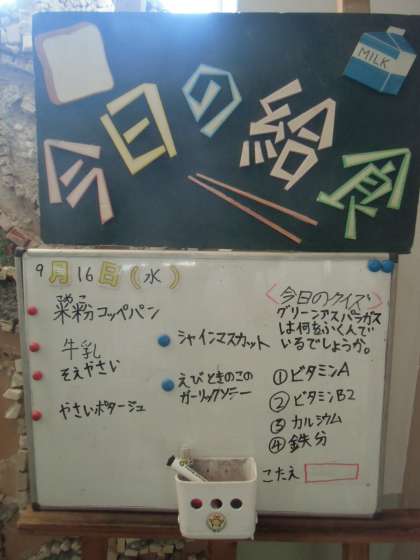 今日の給食
MILK
9月16日(水)
米粉コッペパン
牛乳
そえやさい
やさいポタージュ
シャインマスカット
えびときのこの
ガーリックソテー
<今日のクイズ>
グリーンアスパラガス
は何をふくんで
いるでしょうか。
①ビタミンA
②ビタミンB2
③カルシウム
④鉄分
こたえ